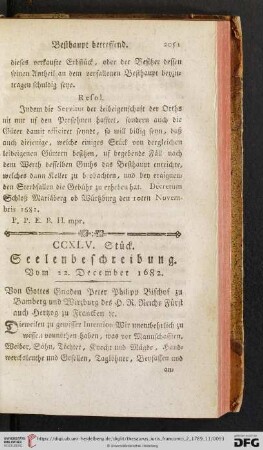 Besthaupt betreffend. 2051
dieses verkaufte Erbstück, oder der Besitzer dessen
seinen Antheil an dem verfallenen Besthaupt beyzu-
tragen schuldig seye.
Resol.
Indem die Servitus der Leibeigenschaft der Orths
nit nur uf den Persohnen haftet, sondern auch die
Güter damit afficiret seynde, so will billig seyn, daß
auch diejenige, welche einiges Stück von dergleichen
leibeigenen Güttern besitzen, uf begebende Fäll nach
dem Werth desselben Guths das Besthaupt entrichte,
welches dann Keller zu beobachten, und bey ereignen-
den Sterbfällen die Gebühr zu erheben hat. Decretum
Schloß Mariäberg ob Würtzburg den 10ten Novem-
bris 1682.
P. P. E. B. H. mpr.
CCXLV. Stück.
Seelenbeschreibung.
Vom 22. December 1682.
Von Gottes Gnaden Peter Philipp Bischof zu
Bamberg und Würtzburg des H. R. Reichs Fürst
auch Hertzog zu Francken ꝛc.
Dieweilen zu gewisser Intention Wir unentbehrlich zu
wissen vonnöthen haben, was vor Mannschafften,
Weiber, Söhn, Töchter, Knecht und Mägde, Hand-
werckleuthe und Gesellen, Taglöhner, Beysassen und
an-
UNIVERSITÄTS-BIBLIOTHEK HEIDELBERG
Gefördert durch die DFG